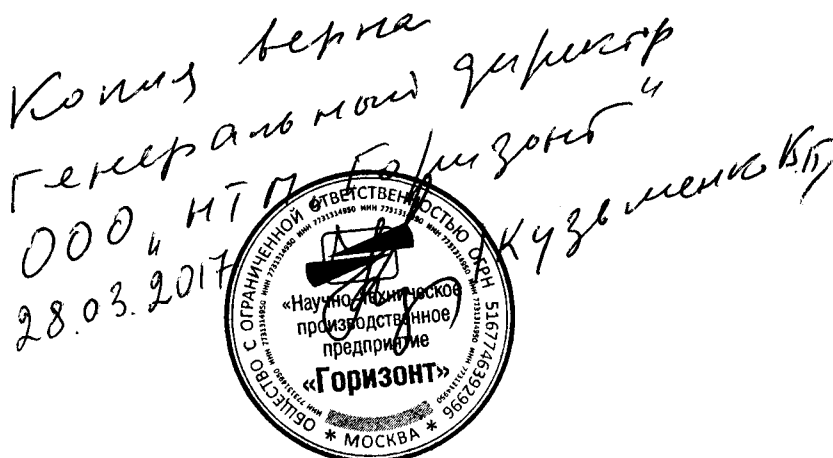 Копия верна
Генеральный директор
ООО „НТП Горизонт"
28.03.2017 /Кузьменко В.П/
ОБЩЕСТВО С ОГРАНИЧЕННОЙ ОТВЕТСТВЕННОСТЬЮ ОГРН 5167746392996
ИНН 7731314950 ИНН 7731314950 ИНН 7731314950 ИНН 7731314950
«Научно-техническое
производственное
предприятие
«Горизонт»
* МОСКВА *